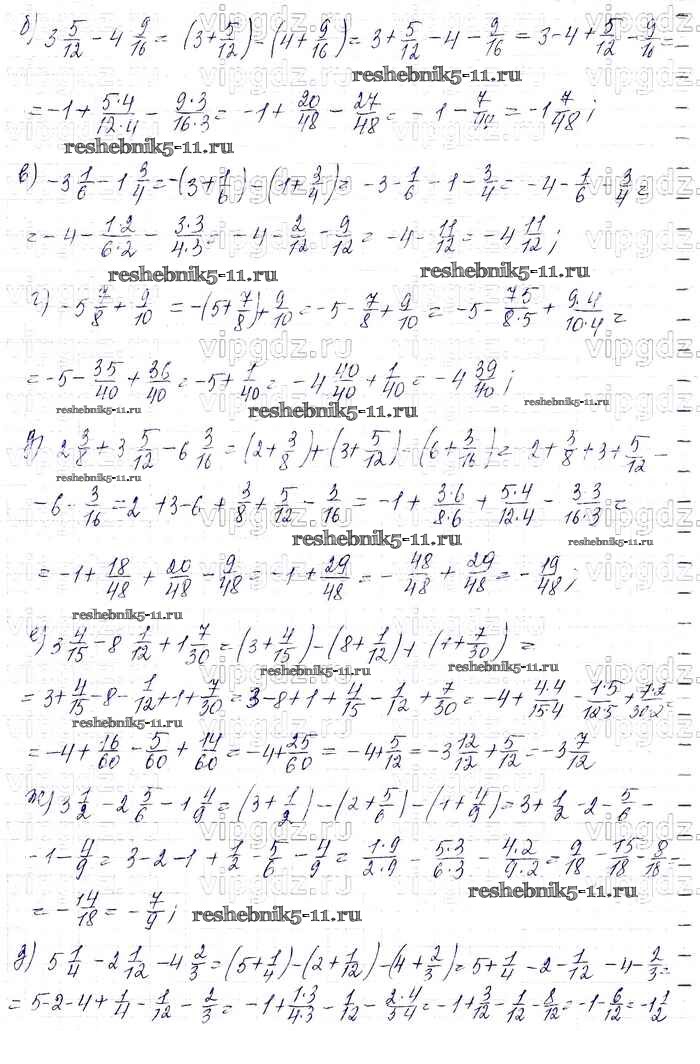 б) 3 5/12 - 4 9/16 = (3+5/12) - (4+9/16) = 3+5/12-4-9/16 = 3-4+5/12-9/16=
reshebnik5-11.ru
=-1+5·4/12·4 - 9·3/16·3 = -1+20/48-27/48= -1-7/48=-1 7/48;
reshebnik5-11.ru
в) -3 1/6 - 1 3/4 =-(3+1/6)-(1+3/4)= -3-1/6-1-3/4= -4-1/6-3/4=
=-4-1·2/6·2 - 3·3/4·3= -4-2/12-9/12= -4-11/12=-4 11/12;
reshebnik5-11.ru reshebnik5-11.ru
г) -5 7/8 + 9/10 =-(5+7/8)+9/10=-5-7/8+9/10= -5-7·5/8·5 + 9·4/10·4=
=-5-35/40+36/40=-5+1/40= -4 40/40+1/40=-4 39/40;
reshebnik5-11.ru reshebnik5-11.ru reshebnik5-11.ru
д) 2 3/8+3 5/12-6 3/16 =(2+3/8)+(3+5/12)-(6+3/16)= 2+3/8+3+5/12-
reshebnik5-11.ru
-6-3/16=2+3-6+3/8+5/12-3/16 = -1+3·6/8·6+5·4/12·4-3·3/16·3=
reshebnik5-11.ru reshebnik5-11.ru
=-1+18/48+20/48-9/48=-1+29/48=-48/48+29/48=-19/48;
reshebnik5-11.ru
е) 3 4/15-8 1/12+1 7/30=(3+4/15)-(8+1/12)+(1+7/30)=
reshebnik5-11.ru reshebnik5-11.ru
=3+4/15-8-1/12+1+7/30=3-8+1+4/15-1/12+7/30=-4+4·4/15·4-1·5/12·5+7·2/30·2=
reshebnik5-11.ru
=-4+16/60-5/60+14/60=-4+25/60=-4+5/12=-3 12/12+5/12=-3 7/12
ж) 3 1/2-2 5/6-1 4/9=(3+1/2)-(2+5/6)-(1+4/9)=3+1/2-2-5/6-
-1-4/9=3-2-1+1/2-5/6-4/9=1·9/2·9-5·3/6·3-4·2/9·2=9/18-15/18-8/18=
reshebnik5-11.ru
=-14/18=-7/9;
reshebnik5-11.ru
д) 5 1/4-2 1/12-4 2/3=(5+1/4)-(2+1/12)-(4+2/3)=5+1/4-2-1/12-4-2/3=
=5-2-4+1/4-1/12-2/3=-1+1·3/4·3-1/12-2·4/3·4=-1+3/12-1/12-8/12=-1-6/12=-1 1/2